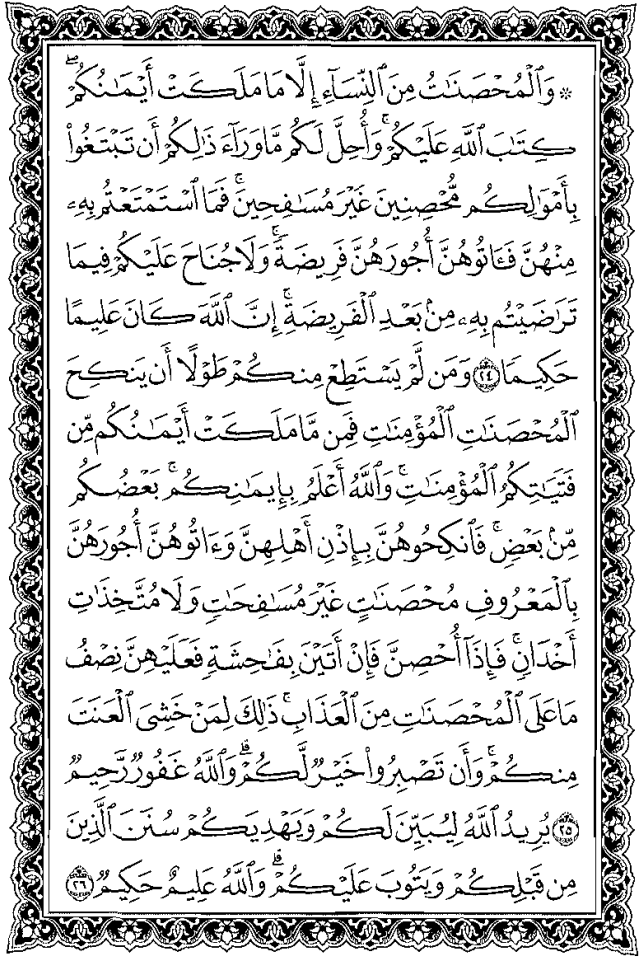 ۞ وَٱلْمُحْصَنَٰتُ مِنَ ٱلنِّسَآءِ إِلَّا مَا مَلَكَتْ أَيْمَٰنُكُمْ ۖ
كِتَٰبَ ٱللَّهِ عَلَيْكُمْ ۚ وَأُحِلَّ لَكُم مَّا وَرَآءَ ذَٰلِكُمْ أَن تَبْتَغُوا۟
بِأَمْوَٰلِكُم مُّحْصِنِينَ غَيْرَ مُسَٰفِحِينَ ۚ فَمَا ٱسْتَمْتَعْتُم بِهِۦ
مِنْهُنَّ فَـَٔاتُوهُنَّ أُجُورَهُنَّ فَرِيضَةً ۚ وَلَا جُنَاحَ عَلَيْكُمْ فِيمَا
تَرَٰضَيْتُم بِهِۦ مِنۢ بَعْدِ ٱلْفَرِيضَةِ ۚ إِنَّ ٱللَّهَ كَانَ عَلِيمًا
حَكِيمًا ٢٤ وَمَن لَّمْ يَسْتَطِعْ مِنكُمْ طَوْلًا أَن يَنكِحَ
ٱلْمُحْصَنَٰتِ ٱلْمُؤْمِنَٰتِ فَمِن مَّا مَلَكَتْ أَيْمَٰنُكُم مِّن
فَتَيَٰتِكُمُ ٱلْمُؤْمِنَٰتِ ۚ وَٱللَّهُ أَعْلَمُ بِإِيمَٰنِكُم ۚ بَعْضُكُم
مِّنۢ بَعْضٍ ۚ فَٱنكِحُوهُنَّ بِإِذْنِ أَهْلِهِنَّ وَءَاتُوهُنَّ أُجُورَهُنَّ
بِٱلْمَعْرُوفِ مُحْصَنَٰتٍ غَيْرَ مُسَٰفِحَٰتٍ وَلَا مُتَّخِذَٰتِ
أَخْدَانٍ ۚ فَإِذَآ أُحْصِنَّ فَإِنْ أَتَيْنَ بِفَٰحِشَةٍ فَعَلَيْهِنَّ نِصْفُ
مَا عَلَى ٱلْمُحْصَنَٰتِ مِنَ ٱلْعَذَابِ ۚ ذَٰلِكَ لِمَنْ خَشِىَ ٱلْعَنَتَ
مِنكُمْ ۚ وَأَن تَصْبِرُوا۟ خَيْرٌ لَّكُمْ ۗ وَٱللَّهُ غَفُورٌ رَّحِيمٌ
٢٥ يُرِيدُ ٱللَّهُ لِيُبَيِّنَ لَكُمْ وَيَهْدِيَكُمْ سُنَنَ ٱلَّذِينَ
مِن قَبْلِكُمْ وَيَتُوبَ عَلَيْكُمْ ۗ وَٱللَّهُ عَلِيمٌ حَكِيمٌ ٢٦